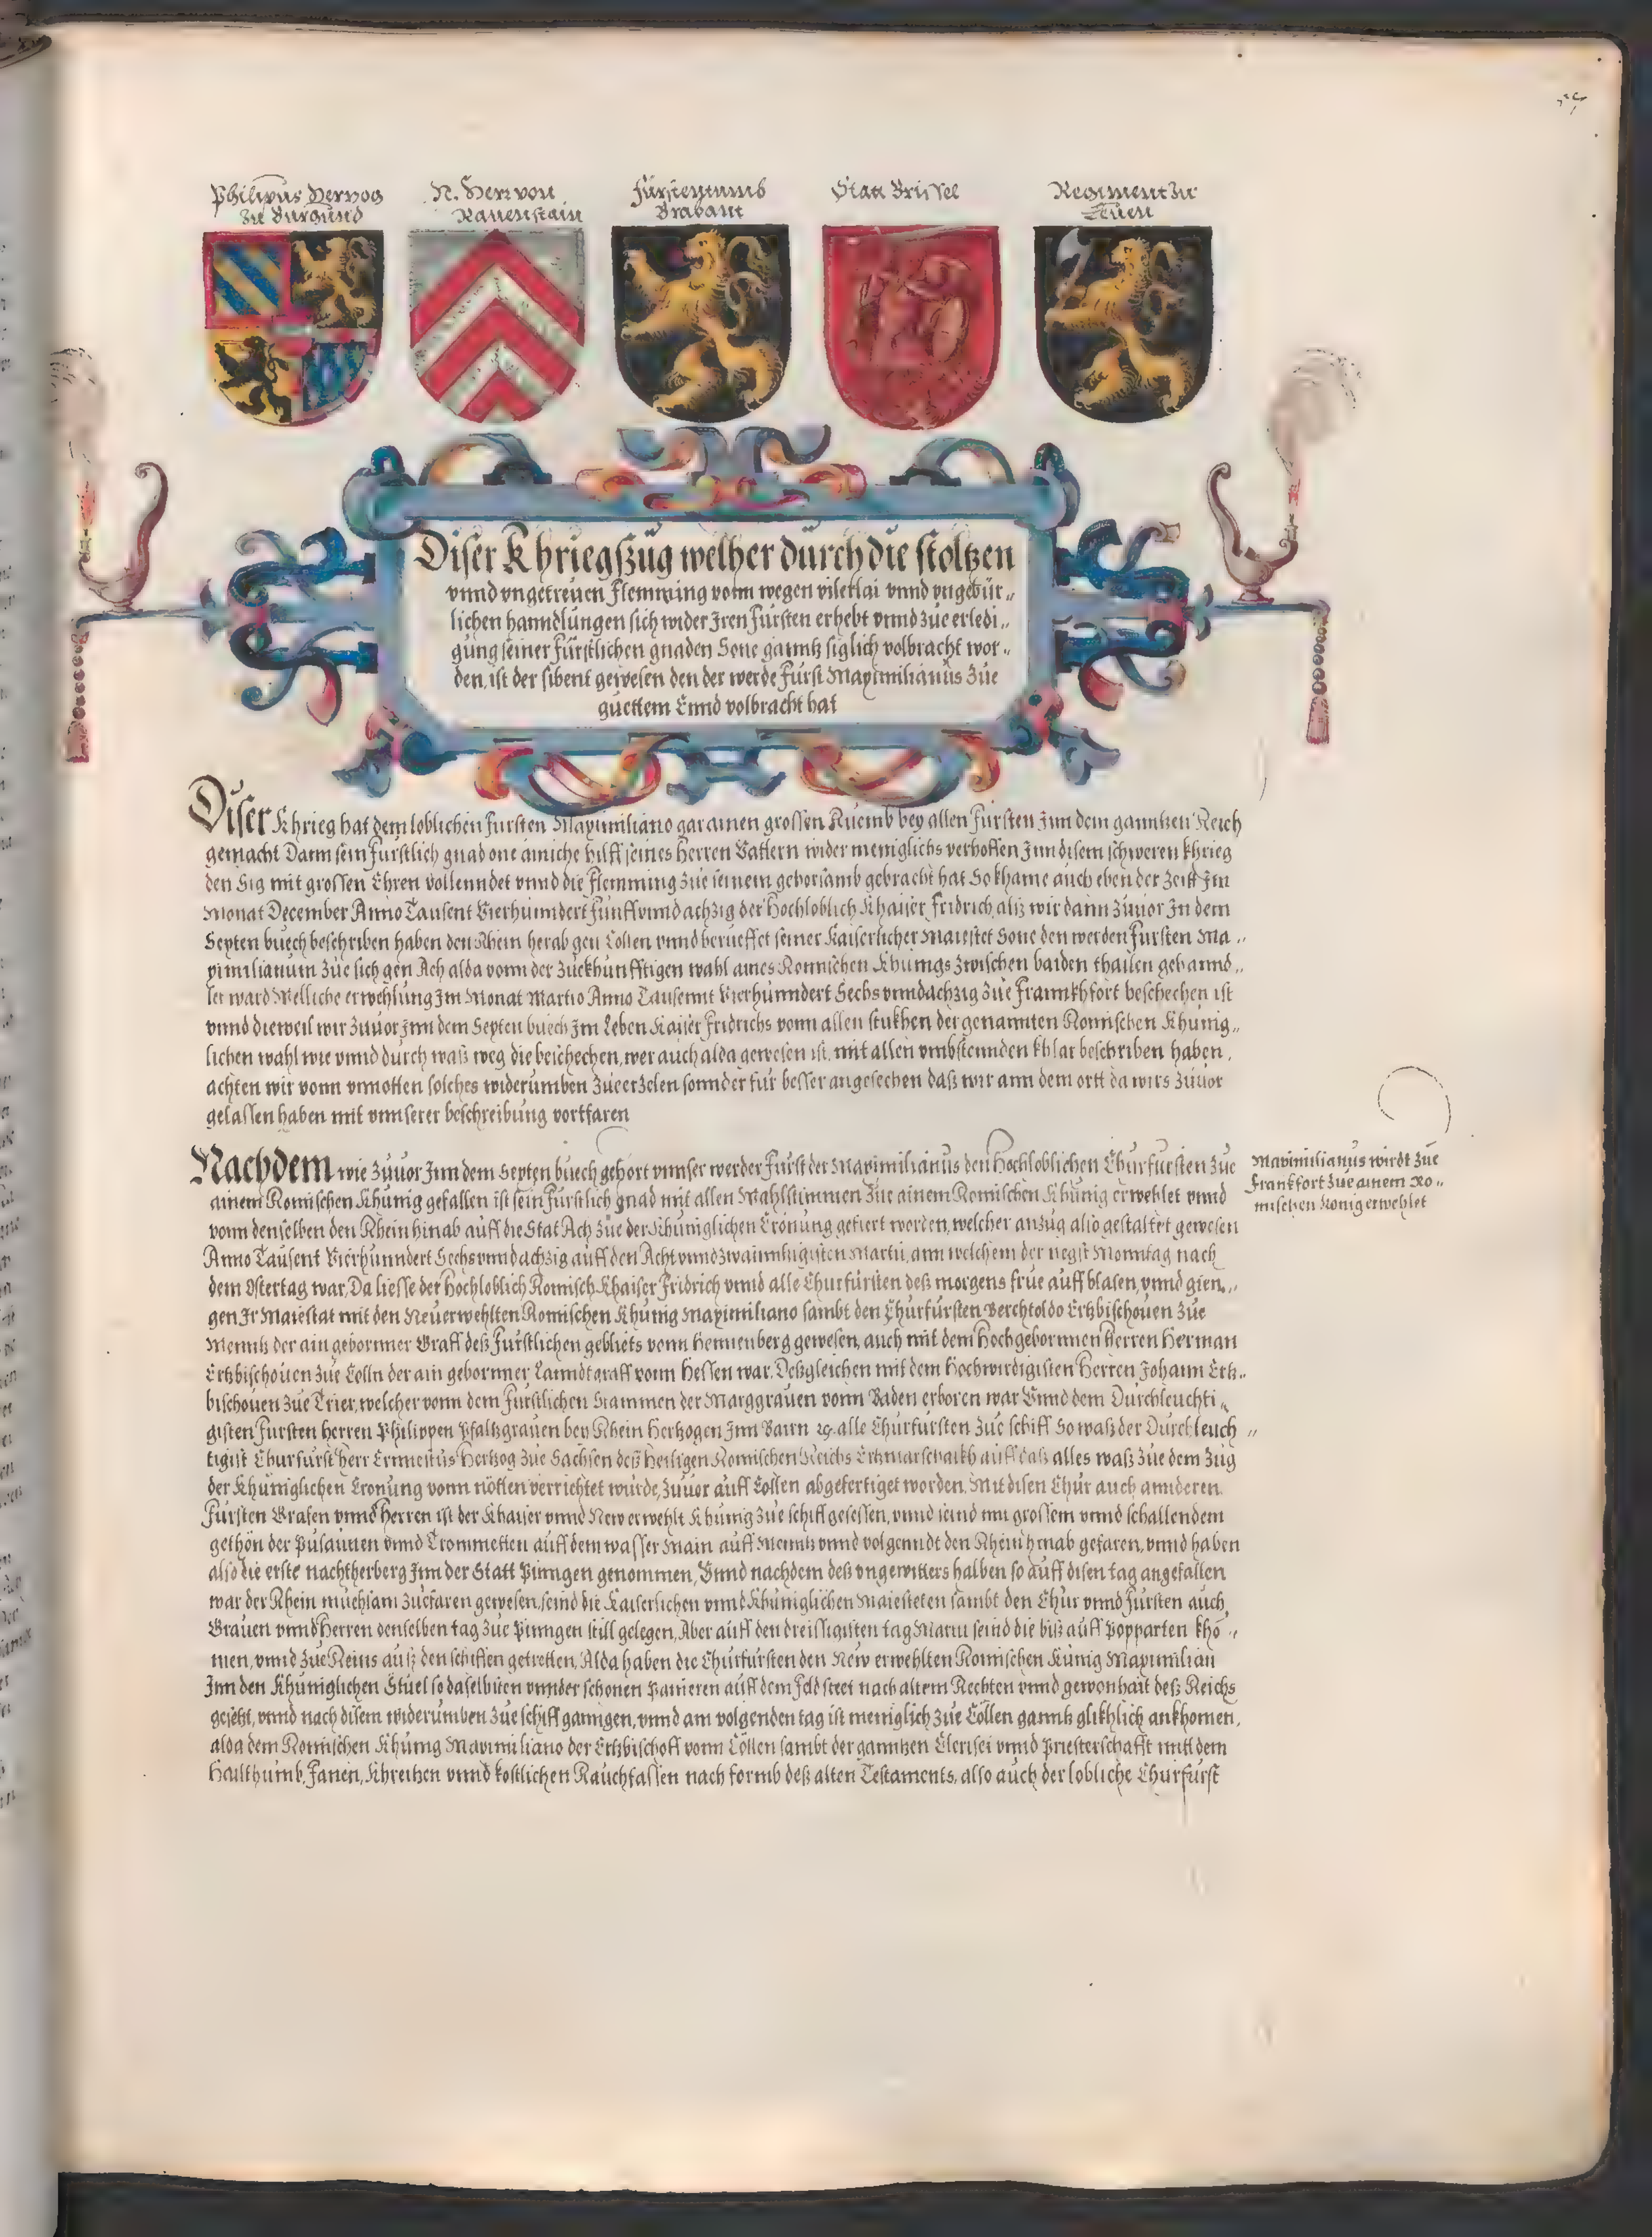 Philipus Hertzog
zu Burgund
N. Herr von
Ravenstain
Fürstentumb
Brabant
Statt Brüssel
Regiment zu
Leuen
Diser Khriegszüg welher dürch die stoltzen
vnnd vngetreüen Flemming vonn wegen vilerlai vnnd vngebür„
lichen hanndlüngen sich wider Iren Fürsten erhebt vnnd züe erledi„
güng seiner Fürstlichen gnaden Sone ganntz siglich volbracht wor„
den, ist der sibent gewesen den der werde Fürst Maximilianüs züe
güettem Ennd volbracht hat
Diser Khrieg hat dem loblichen Fürsten Maximiliano gar ainen grossen Rüemb bey allen Fürsten Inn dem ganntzen Reich
gemacht Dann sein Fürstlich gnad one ainiche hilff seines Herren Vattern wider meniglichs verhoffen Inn disem schweren khrieg
den Sig mit grossen Ehren vollenndet vnnd die Flemming züe seinem gehorsamb gebracht hat So khame auch eben der Zeitt Im
Monat December Anno Taüsent Vierhünndert Fünffvnndachzig der Hochloblich Khaiser Fridrich, alß wir dann züuor In dem
Septen büech beschriben haben den Rhein herab gen Cöllen vnnd berüeffet seiner Kaiserlicher Maiestet Sone den werden Fürsten Ma„
ximilianum züe sich gen Ach alda vonn der züekhünfftigen wahl aines Römischen Khünigs zwischen baiden thailen gehannd„
let ward Welliche erwehlüng Im Monat Martio Anno Taüsennt Vierhünndert Sechsvnndachzig züe Frannkhfort beschechen ist
vnnd dieweil wir züuor Inn dem Septen büech Im Leben Kaiser Fridrichs vonn allen stükhen der genannten Romischen Khünig„
lichen wahl wie vnnd dürch waß weg die beschechen, wer auch alda gewesen ist, mit allen vmbstennden khlar beschriben haben,
achten wir vonn vnnotten solches widerümben züeerzelen sonnder für besser angesechen daß wir ann dem ortt da wirs züuor
gelassen haben mit vnnserer beschreibüng vortfaren
Nachdem wie züuor Inn dem Septen büech gehört vnnser werder Fürst der Maximilianüs den Hochloblichen Chürfürsten züe
ainem Romischen Khünig gefallen ist sein Fürstlich gnad mit allen Wahlstimmen züe ainem Romischen Khünig erwehlet vnnd
vonn denselben den Rhein hinab aüff die Stat Ach züe der Khüniglichen Crönüng gefiert worden, welcher anzüg also gestaltet gewesen
Anno Taüsent Vierhünndert Sechsvnndachzig aüff den Acht vnndzwainnhigisten Martii, ann welchem der negst Monntag nach
dem Ostertag war, Da liesse der Hochloblich Romisch Khaiser Fridrich vnnd alle Chürfürsten deß morgens früe aüff blasen, vnnd gien„
gen Ir Maiestat mit den Neüerwehlten Romischen Khünig Maximiliano sambt den Chürfürsten Berchtoldo Ertzbischouen züe
Menntz der ain geborner Graff deß Fürstlichen geblüets vonn Hennenberg gewesen, auch mit dem Hochgebornnen Herren Herman
Ertzbischouen züe Cölln der ain gebornner Lanndtgraff vonn Hessen war, Deßgleichen mit dem Hochwirdigisten Herren Johann Ertz„
bischouen züe Trier, welcher vonn dem Fürstlichen Stammen der Marggrauen vonn Baden erboren war Vnnd dem Dürchleüchti„
gisten Fürsten Herren Philippen Pfaltzgrauen bey Rhein Hertzogen Inn Bairn ꝛc. alle Chürfürsten züe schiff So waß der Dürchleüch„
tigist Chürfürst Herr Ernnestüs Hertzog züe Sachsen deß Heiligen Romischen Reichs Ertzmarschalkh aüff daß alles waß züe dem züg
der Khüniglichen Cronüng vonn nötten verrichtet würde, züuor aüff Cöllen abgefertiget worden, Mit disen Chür auch annderen
Fürsten Grafen vnnd Herren ist der Khaiser vnnd New erwehlt Khünig züe schiff gesessen, vnnd seind mit grossem vnnd schallendem
gethön der Püsaünen vnnd Trommetten aüff dem wasser Main aüff Menntz vnnd volgenndt den Rhein hinab gefaren, vnnd haben
also die erste nachtherberg Inn der Statt Pinngen genommen, Vnnd nachdem deß vngewitters halben so aüff disen tag angefallen
war der Rhein müehsam züefaren gewesen, seind die Kaiserlichen vnnd Khüniglichen Maiesteten sambt den Chür vnnd Fürsten auch,
Grauen vnnd Herren denselben tag züe Pinngen still gelegen, Aber aüff den dreissigisten tag Martii seind die biß aüff Popparten kho„
men, vnnd züe Reins auß den schiffen getretten, Alda haben die Chürfürsten den New erwehlten Romischen Künig Maximilian
Inn den Khüniglichen Stüel so daselbsten vnnder schönen Pannieren aüff dem feld steet nach altem Rechten vnnd gewonhait deß Reichs
gesetzt, vnnd nach disem widerümben züe schiff ganngen, vnnd am volgenden tag ist meniglich züe Cöllen ganntz glükhlich ankhomen,
alda dem Romischen Khünig Maximiliano der Ertzbischoff vonn Cöllen sambt der ganntzen Clerisei vnnd Priesterschafft mitt dem
Hailthumb, Fanen, Khreitzen vnnd kostlichen Raüchfassen nach formb deß alten Testaments, also auch der lobliche Chürfürst
Maximilianüs wirdt züe
Franckfort züe ainem Ro„
mischen König erwehlet